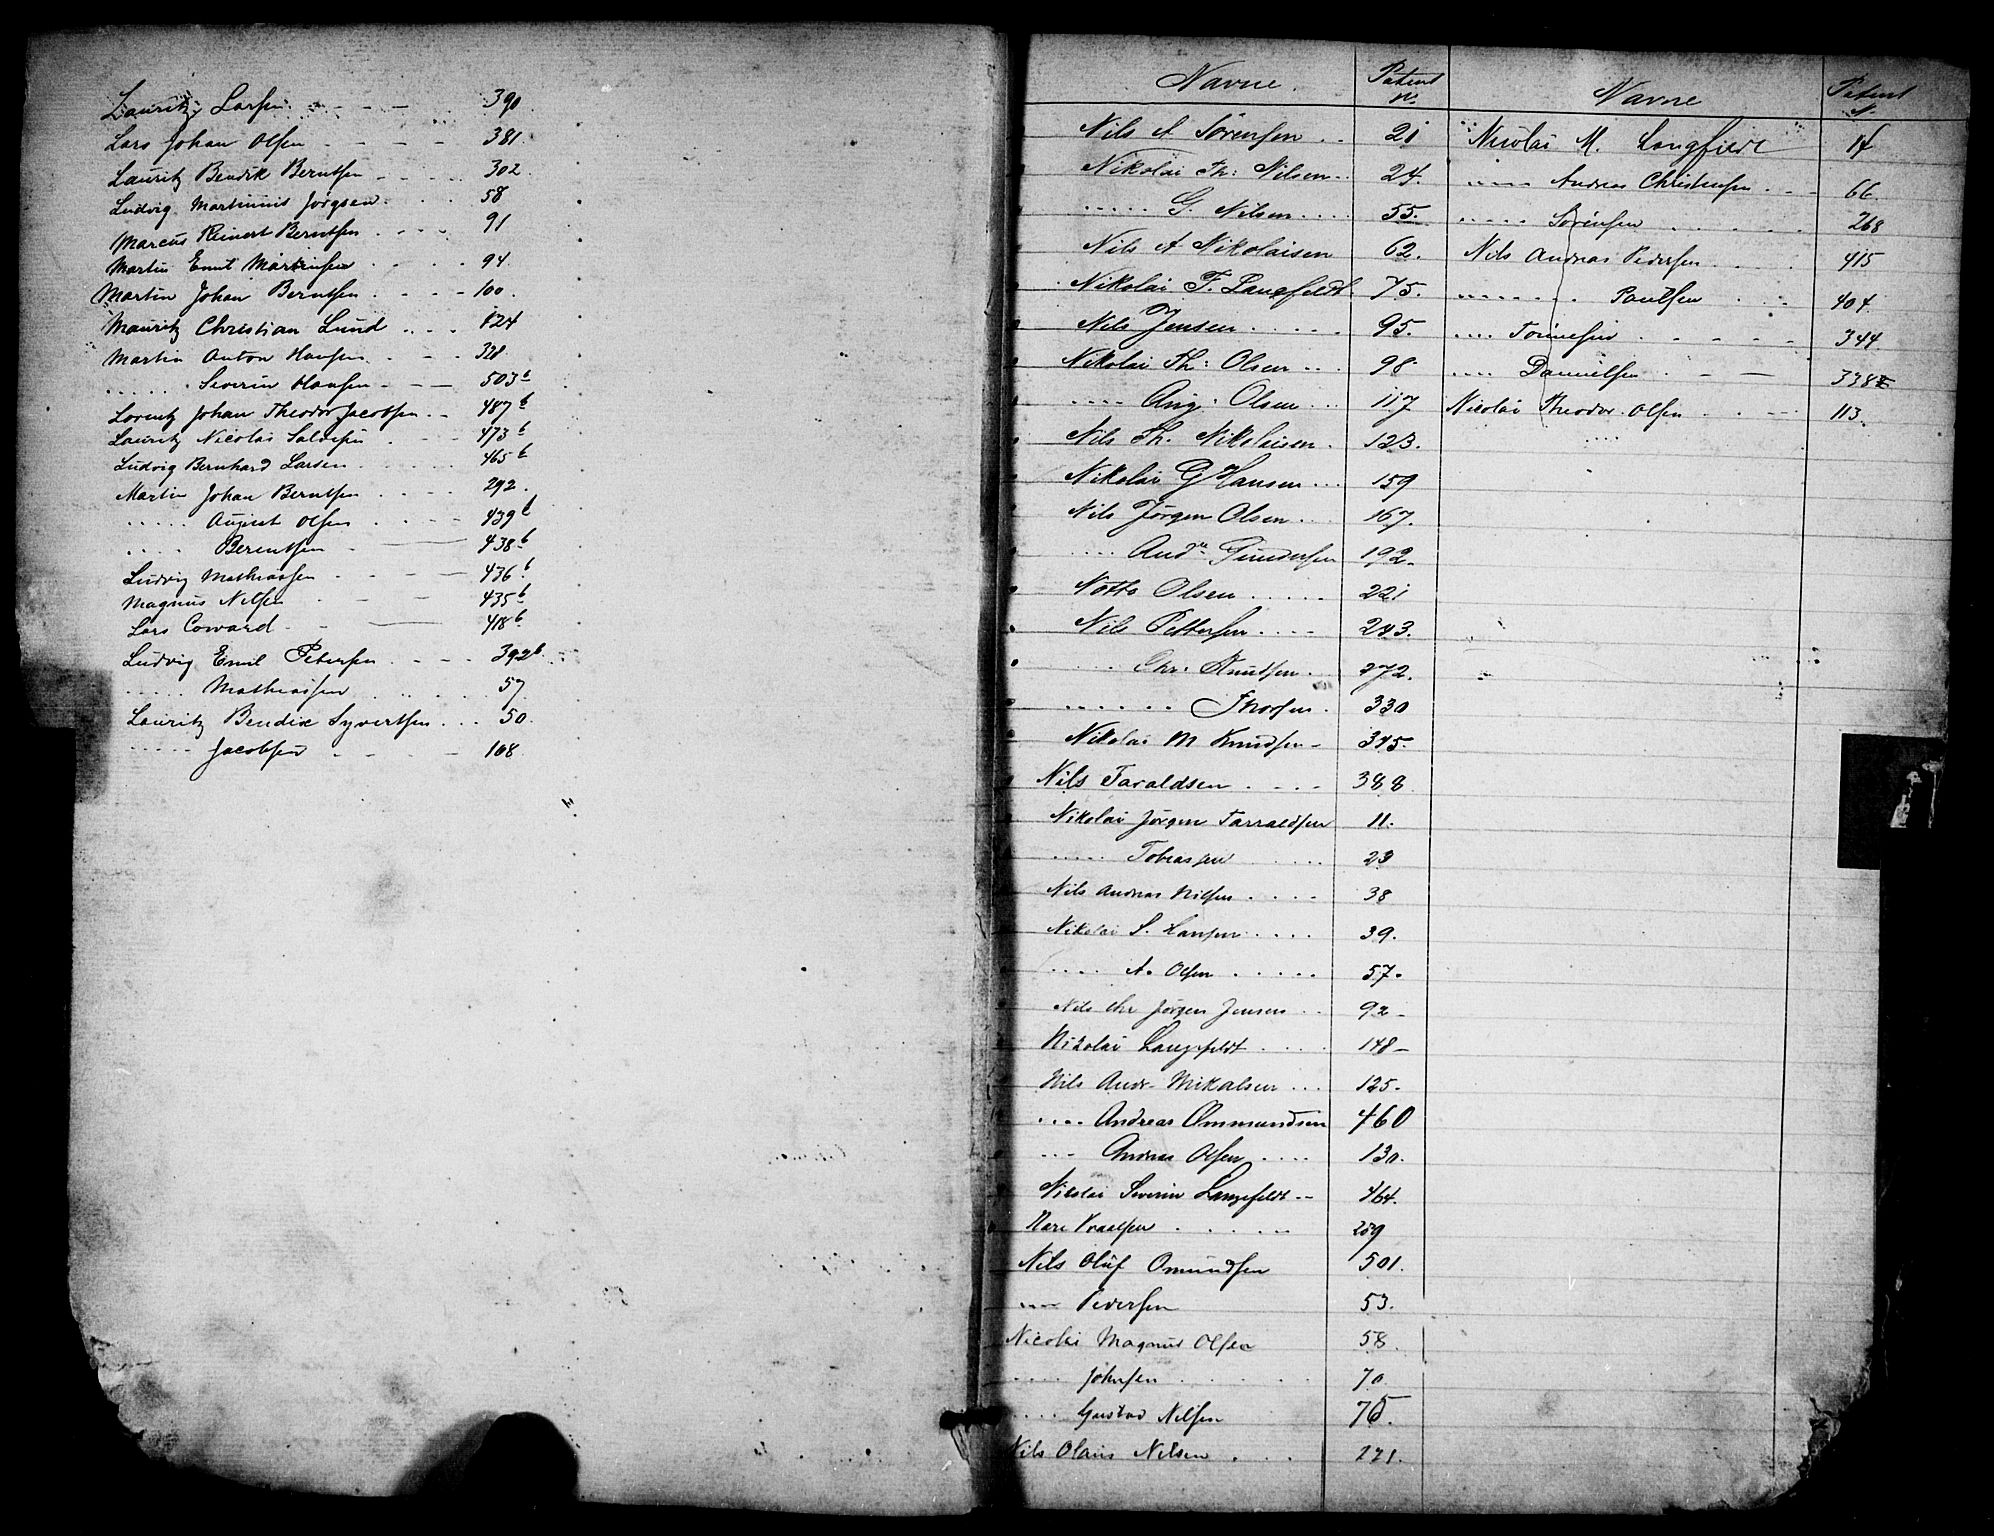 Lauritz Larsen - - - - 390
Lars Johan Olsen - - - - 381.
Lauritz Bendik Berntsen - - - - 302
Ludvig Martinius Jørgsen. . . . 58
Marcus Reinert Berntsen . . . . 91
Martin Emil Martinsen . . . . 94.
Martin Johan Berntsen . . . - 100.
Mauritz Christian Lund . . . . 124
Martin Anton Hansen . . - - 328.
. . . . . Severin Hansen - - - 503 b
Lorentz Johan Theodor Jacobsen . . 487 b
Lauritz Nicolai Salvesen . - - - 473 b
Ludvig Bernhard Larsen . . . . . 465 b
Martin Johan Berntsen . . . . 292.
. . . . . August Olsen . . . . 439 b
. . . . Berentsen - 438 b
Ludvig Mathiassen . - . - 436. b
Magnus Nilsen . - - 435 b
Lars Coward - . 418 b
Ludvig Emil Petersen . . - - 392 b
. . . . . Mathiassen . . . . . 57
Lauritz Bendix Syvertsen . . . 50.
. . . . . Jacobsen - - . - 108
Navne. Patent №.
Nils A Sörensen . . 21
Nikolai Th: Nilsen . . 24.
. . . . . G. Nilsen . . . . 55.
Nils A Nikolaisen 62.
Nikolai F. Langfeldt. 75.
Nils Jensen . . . . . 95.
Nikolai Th: Olsen . . . 98.
. . . . Aug: Olsen . . . 117
Nils Th. Nikolaisen . 123.
Nikolai G Hansen . . . 159
Nils Jørgen Olsen . . . 167.
. . . . And. Gundersen 192.
Notto Olsen . . . . . 221
Nils Pettersen . . . . 243.
. . . Chr: Knutsen . . 272.
. . . . . . Thorsen . 330
Nikolai M Knudsen - 345.
Nils Taraldsen . - - . 388
Nikolai Jørgen Tarraldsen 11.
. . . . . Tobiassen . . . . . 23
Nils Andreas Nilsen . . . . 38
Nikolai S. Hansen . . . . 39.
. . . . A. Olsen . . . . . 57.
Nils Chr Jørgen Jensen . . 92 -
Nikolai Langefeldt . . . . 148 -
Nils Andr. Mikalsen . . . 125.
. . . . Andreas Ommundsen 460
. . . Andreas Olsen . . . . 130.
Nicolai Severin Langefeldt - - 464.
209
Nils Oluf Omundsen 501.
. . . . Pedersen 53.
Nicolai Magnus Olsen 58.
. . . . Johnsen . . . . . 70.
. . . . Gustav Nilsen 75.
Nils Olaus Nilsen . . . 221.
Navne Patent №.
Nicolai M. Langfeldt 14
. . . . . Andreas Christensen . . . 66.
. . . . . Sørensen . . . . . . 268
Nils Andreas Pedersen . . . . 415
. . . . . . . Paulsen . . . 404.
. . . . Tønnesen . . - - - 344.
. . . . Danielsen . - - 338
Nicolai Theodor Olsen . . - - - 113.